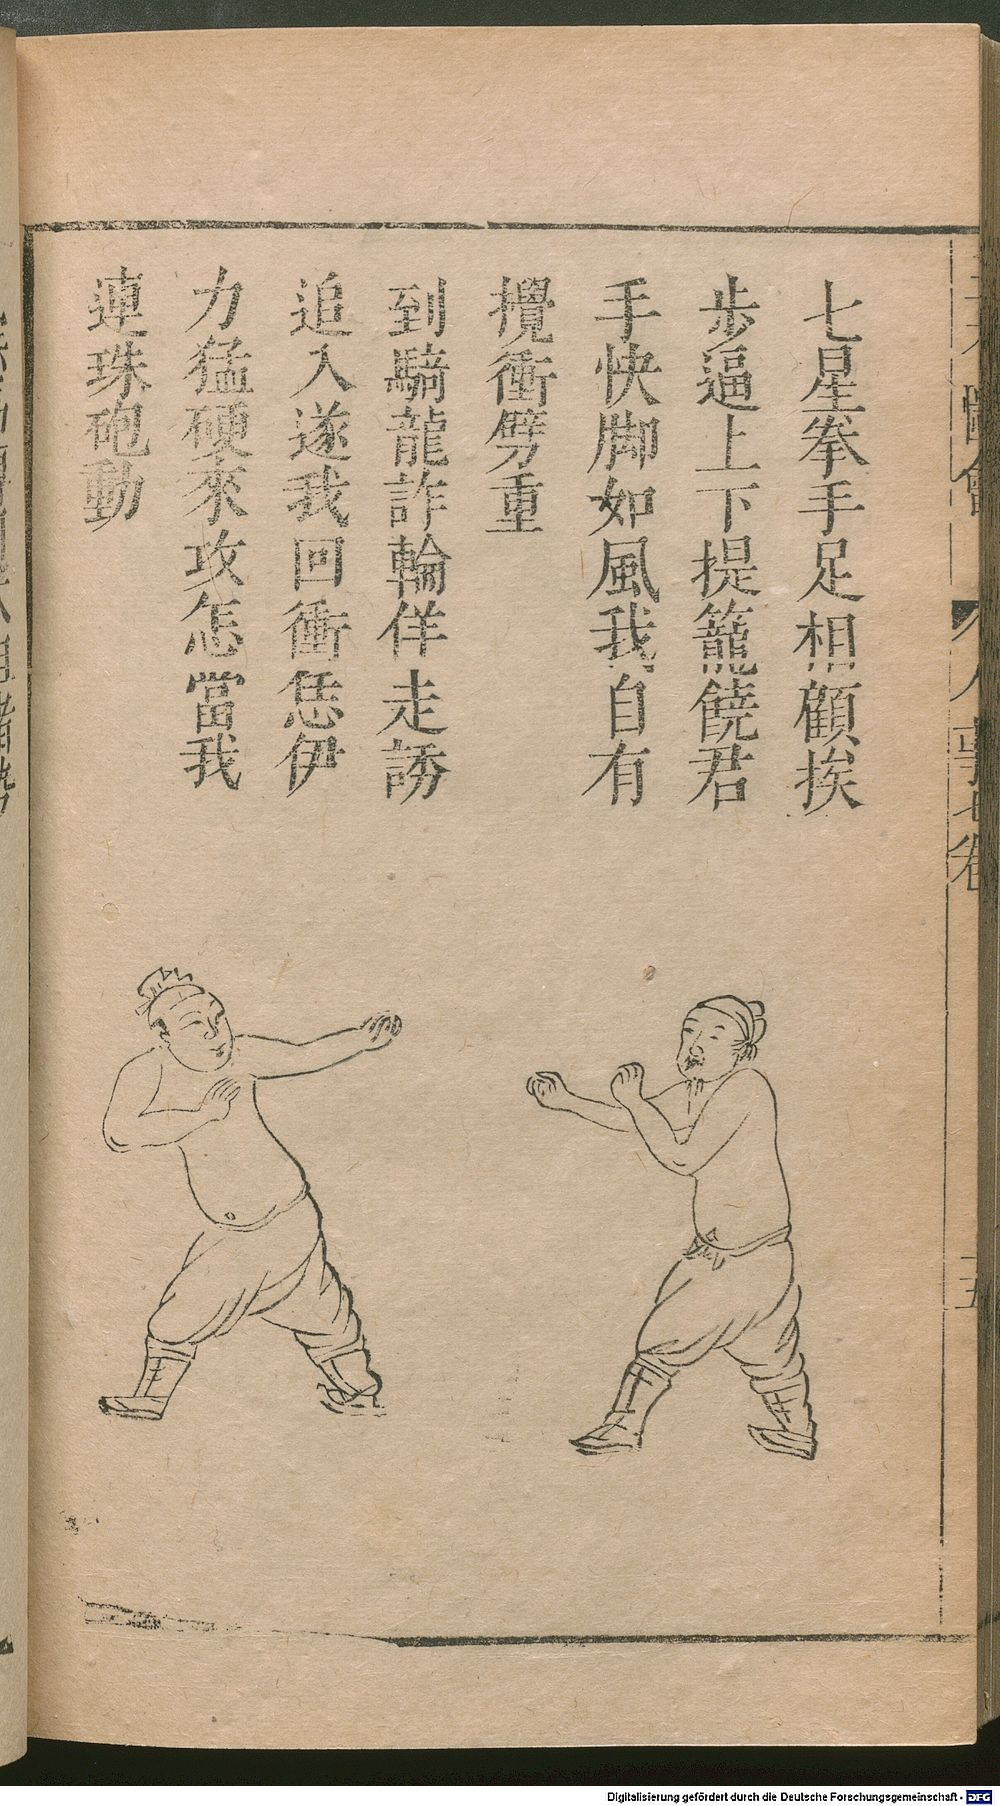 七星拳手足相顧挨
步逼上下提籠饒君
手快脚如風我自有
攪衝劈重
到騎龍詐輪佯走誘
追入遂我回衝恁伊
力猛硬來攻怎當我
連珠砲動
人事七卷
Digitalisierung gefördert durch die Deutsche Forschungsgemeinschaft - DFG